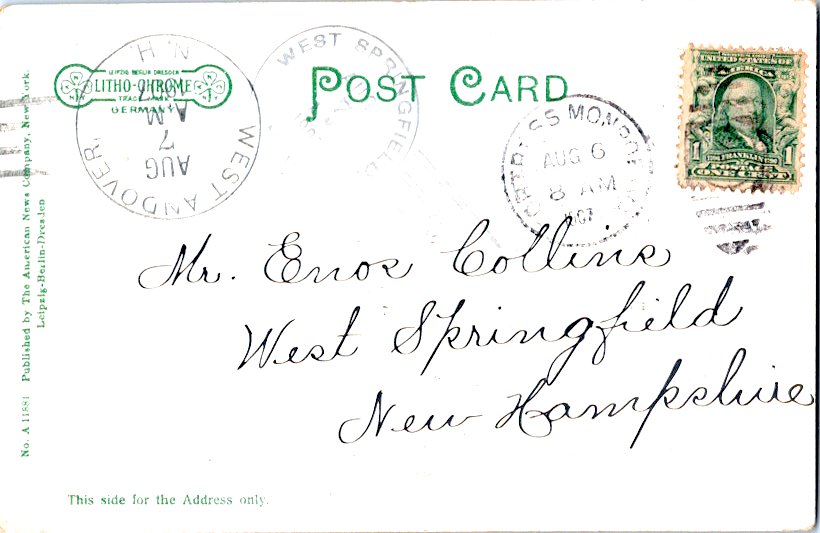 POST CARD
LEIPZIG BERLIN DRESDEN
LITHO-CHROME
TRADE MARK
GERMANY
WEST ANDOVER
N.H.
AUG
7
A.M
1907
WEST SPRINGFIELD
FORTRESS MONROE
AUG 6
8 AM
1907
UNITED STATES OF
AMERICA
1 FRANKLIN 1
POSTAGE
ONE CENT
Mr. Enos Collins
West Springfield
New Hampshire
No. A 11881 Published by The American News Company, New York.
Leipzig-Berlin-Dresden
This side for the Address only.